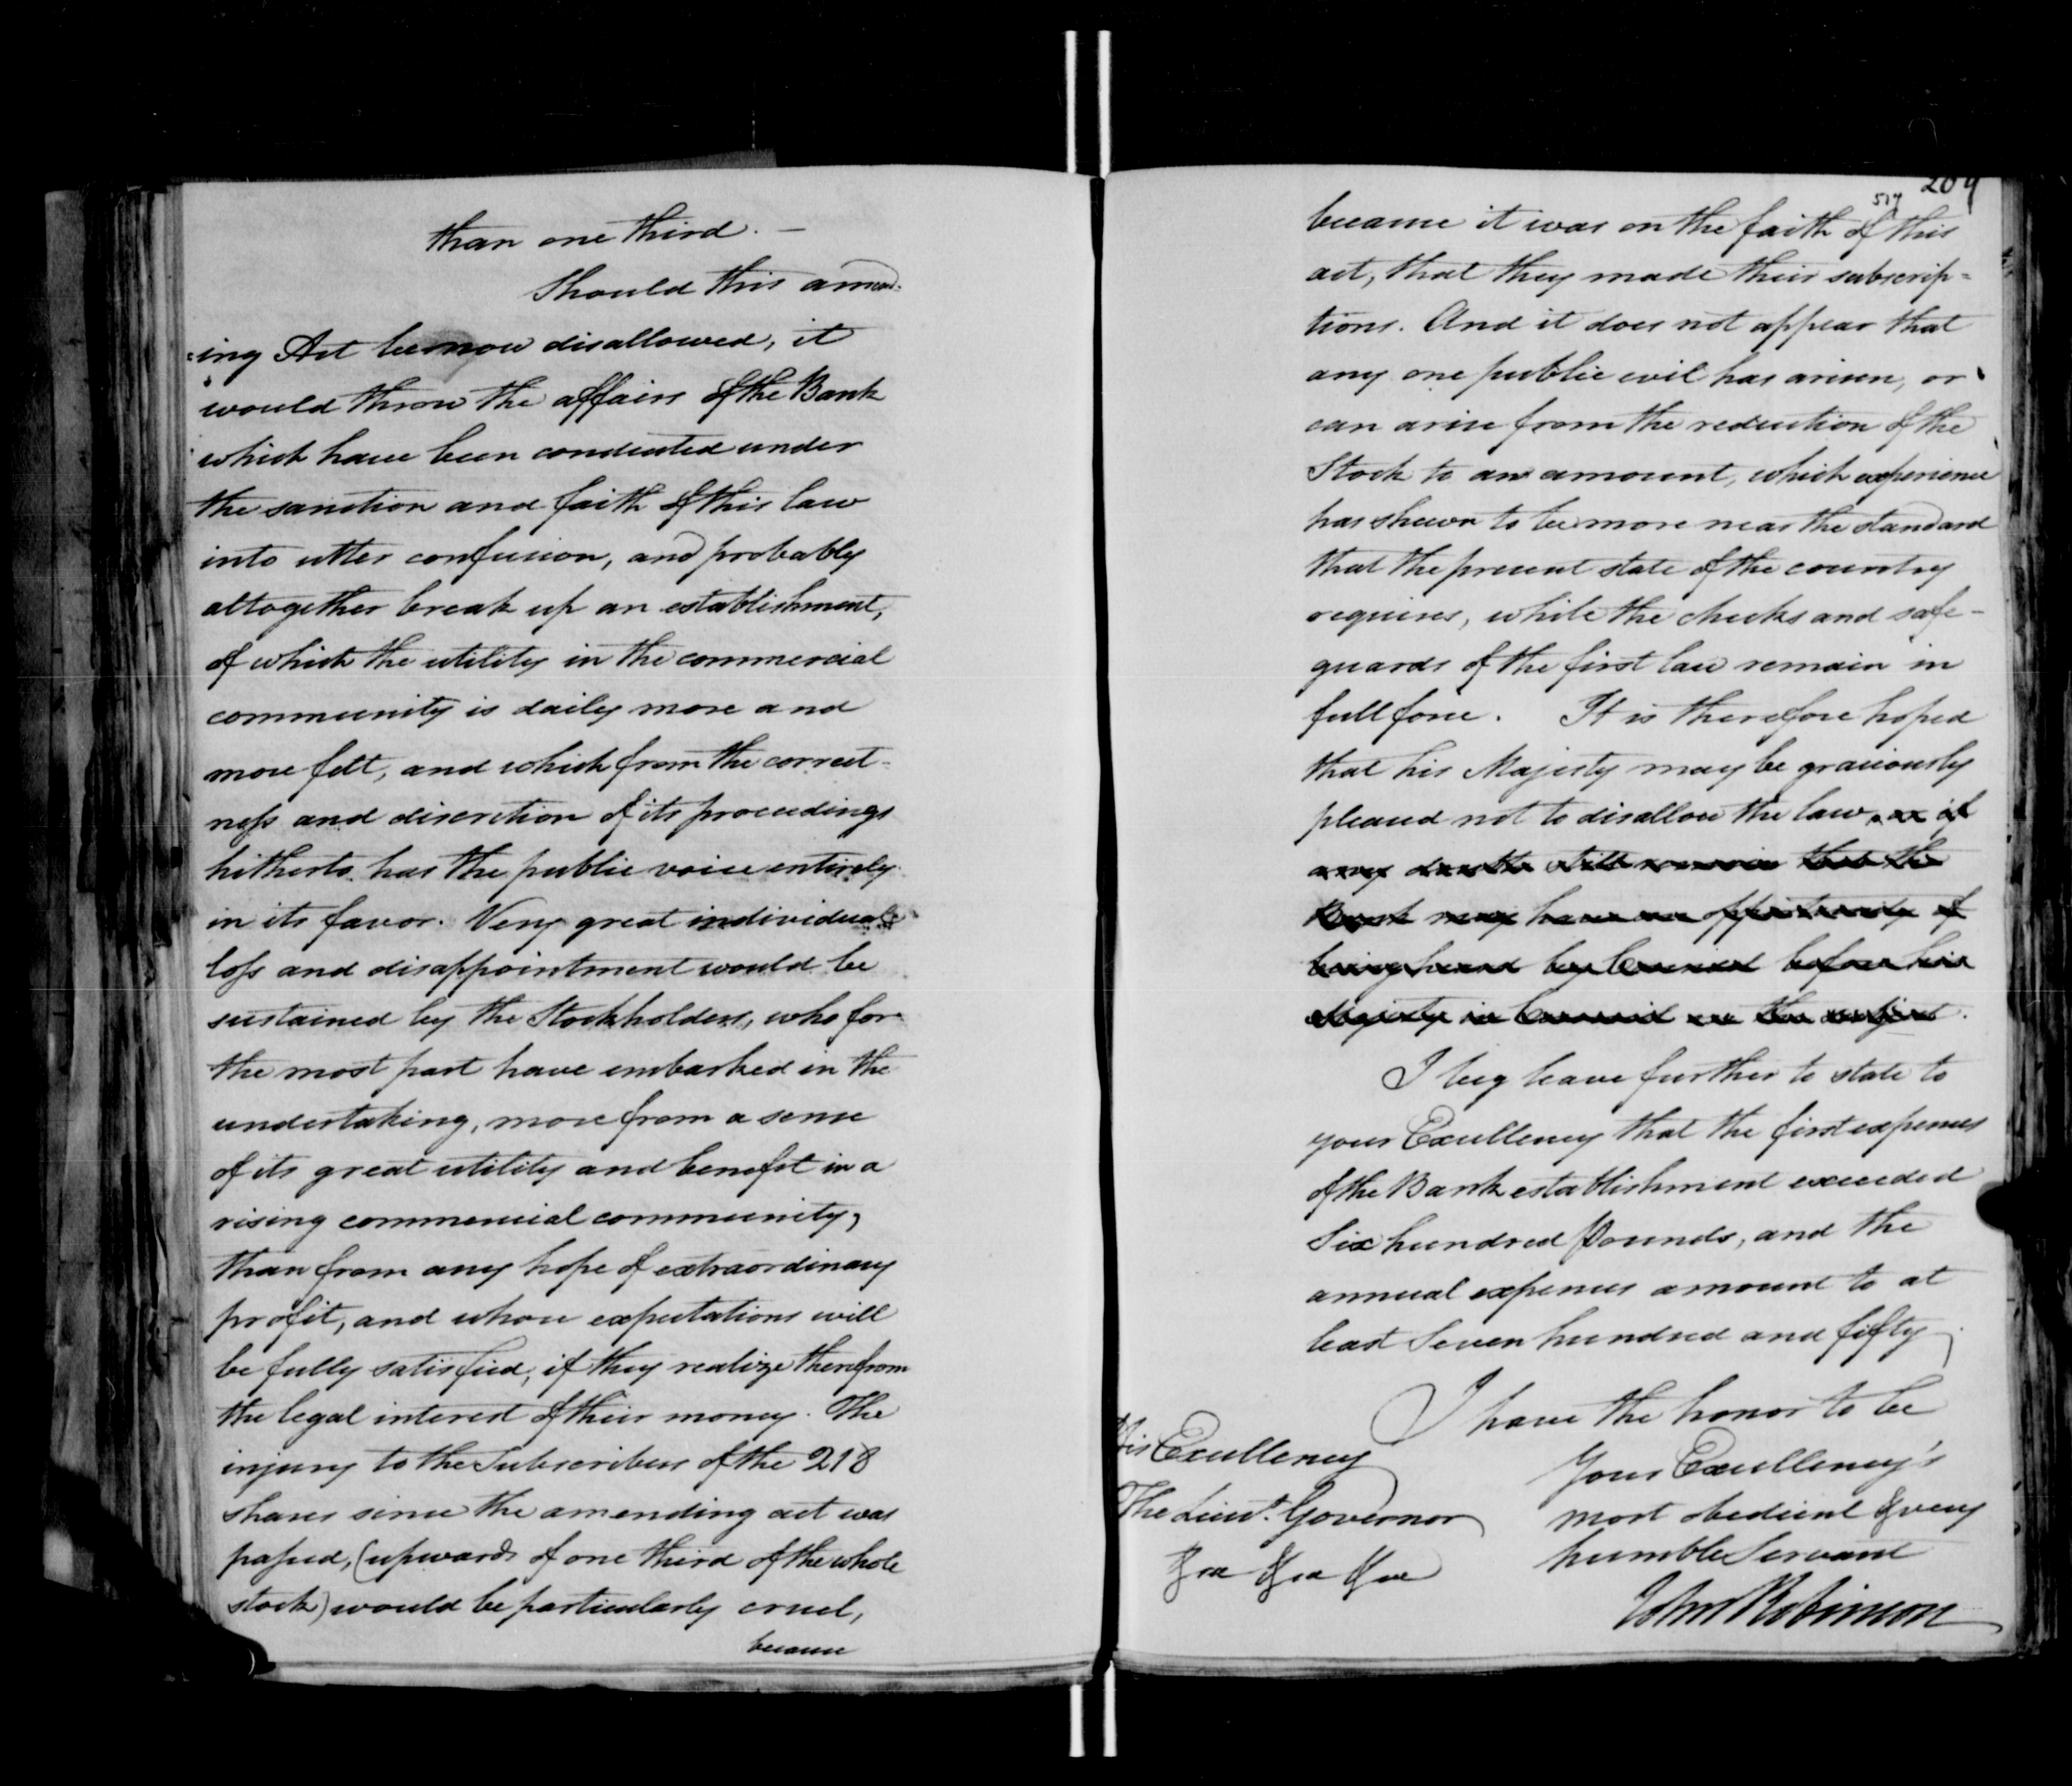 than one third. —
Should this amend-
-ing Act be now disallowed, it
would throw the affairs of the Bank
which have been conducted under
the sanction and faith of this law
into utter confusion, and probably
altogether break up an establishment,
of which the utility in the commercial
community is daily more and
more felt, and which from the correct-
ness and discretion of its proceedings
hitherto has the public voice entirely
in its favor. Very great individual
loss and disappointment would be
sustained by the Stockholders, who for
the most part have embarked in the
undertaking, more from a sense
of its great utility and benefit in a
rising commercial community,
than from any hope of extraordinary
profit, and whose expectations will
be fully satisfied, if they realize therefrom
the legal interest of their money. The
injury to the Subscribers of the 218
shares since the amending act was
passed, (upwards of one third of the whole
stock) would be particularly cruel,
because
209
517
because it was on the faith of this
act, that they made their subscrip=
tions. And it does not appear that
any one public evil has arisen, or
can arise from the reduction of the
Stock to an amount, which experience
has shewn to be more near the standard
that the present state of the country
requires, while the checks and safe-
guards of the first law remain in
full force. It is therefore hoped
that his Majesty may be graciously
pleased not to disallow the law, or if
any doubts still remain that the
Bank may have an opportunity of
being heard by Counsel before his
Majesty in Council on the subject.
I beg leave further to state to
your Excellency that the first expenses
of the Bank establishment exceeded
Six hundred Pounds, and the
annual expenses amount to at
least Seven hundred and fifty
I have the honor to be
Your Excellency's
most obedient & very
humble Servant
John Robinson
His Excellency
The Lieut. Governor
&ca &ca &ca